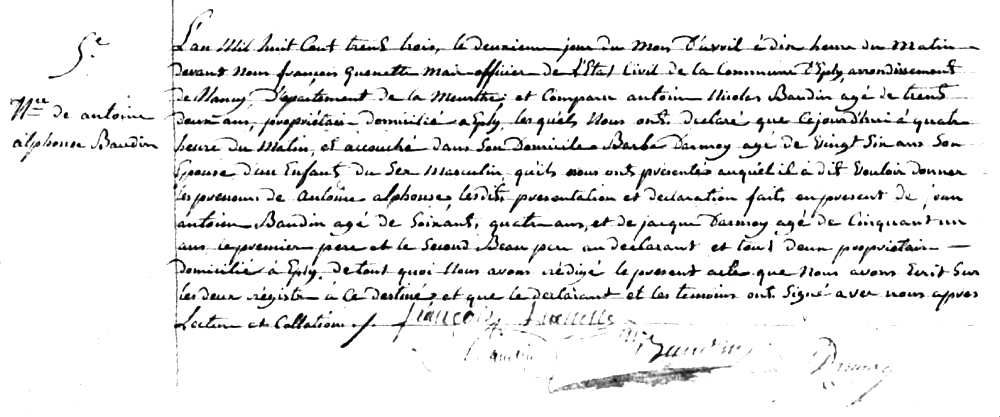 5.e
N.ce de antoine
alphonse Baudin
L'an Mil huit Cent trente trois, le deuxieme jour du mois D'avril à dix heure du Matin
devant Nous françois Guenette Mair officier de l'Etat Civil de la Commune D'Eply, arrondissement
de Nancy, Departement de la Meurthe, et Comparu antoine Nicolas Baudin agé de trente
deux ans, propriétair domicilié a Eply, lesquels Nous onts declaré que Cejourd'hui à quatre
heure du Matin, et accouché dans Son Domicile Barbe Darmoy agé de Vingt Six ans Son
Epouse d'un Enfant du Sex Masculin, qu'ils nous onts présentés auquél il à dit Vouloir donner
les prenoms de Antoine alphonse, lesdits presentation et declaration faits en present de jean
antoine Baudin agé de Soixante quatre ans, et de jacque Darmoy agé de Cinquant un
ans le premier pere et le Second Beau pere au declarant et tout deux propriétair
domicilié à Eply. de tout quoi Nous avons rédigé le present acte que Nous avons Ecrit Sur
les deux régistre à Ce destiné, et que le declarant et les temoins onts Signé avec nous apres
Lecture et Collation./.
françois
Baudin